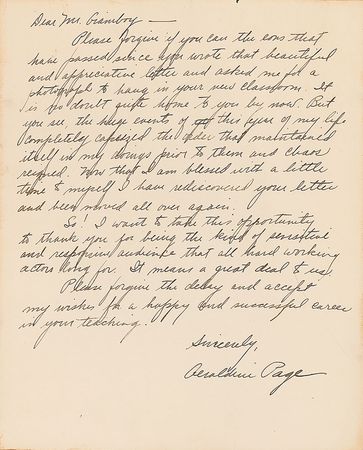 Dear Mr. Giamboy —
Please forgive if you can the eons that
have passed since you wrote that beautiful
and appreciative letter and asked me for a
photograph to hang in your new classroom. It
is no doubt quite home to you by now. But
you see, the huge events of this year of my life
completely capsized the order that maintained
itself in my doings prior to them and chaos
reigned. Now that I am blessed with a little
time to myself I have rediscovered your letter
and been moved all over again.
So! I want to take this opportunity
to thank you for being the kind of sensitive
and responsive audience that all hard working
actors long for. It means a great deal to us.
Please forgive the delay and accept
my wishes for a happy and successful career
in your teaching.
Sincerely,
Geraldine Page